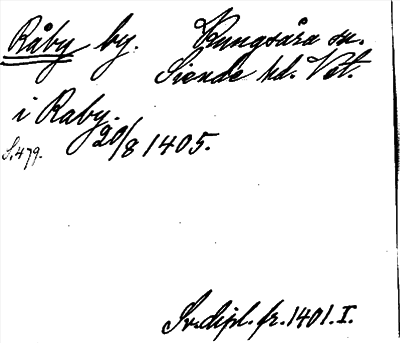 Råby by. Kungsåra sn.
Siende hd. Vstm.
i Raby.
20/8 1405.
S. 479.
Sv. dipl. fr. 1401. I.